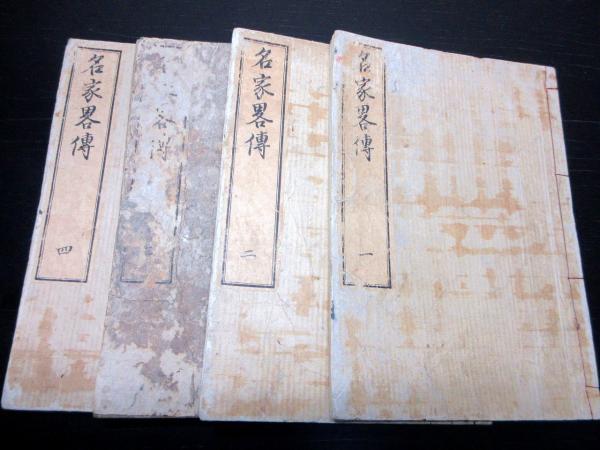 名家畧傳
一
名家畧傳
二
畧傳
名家畧傳
四